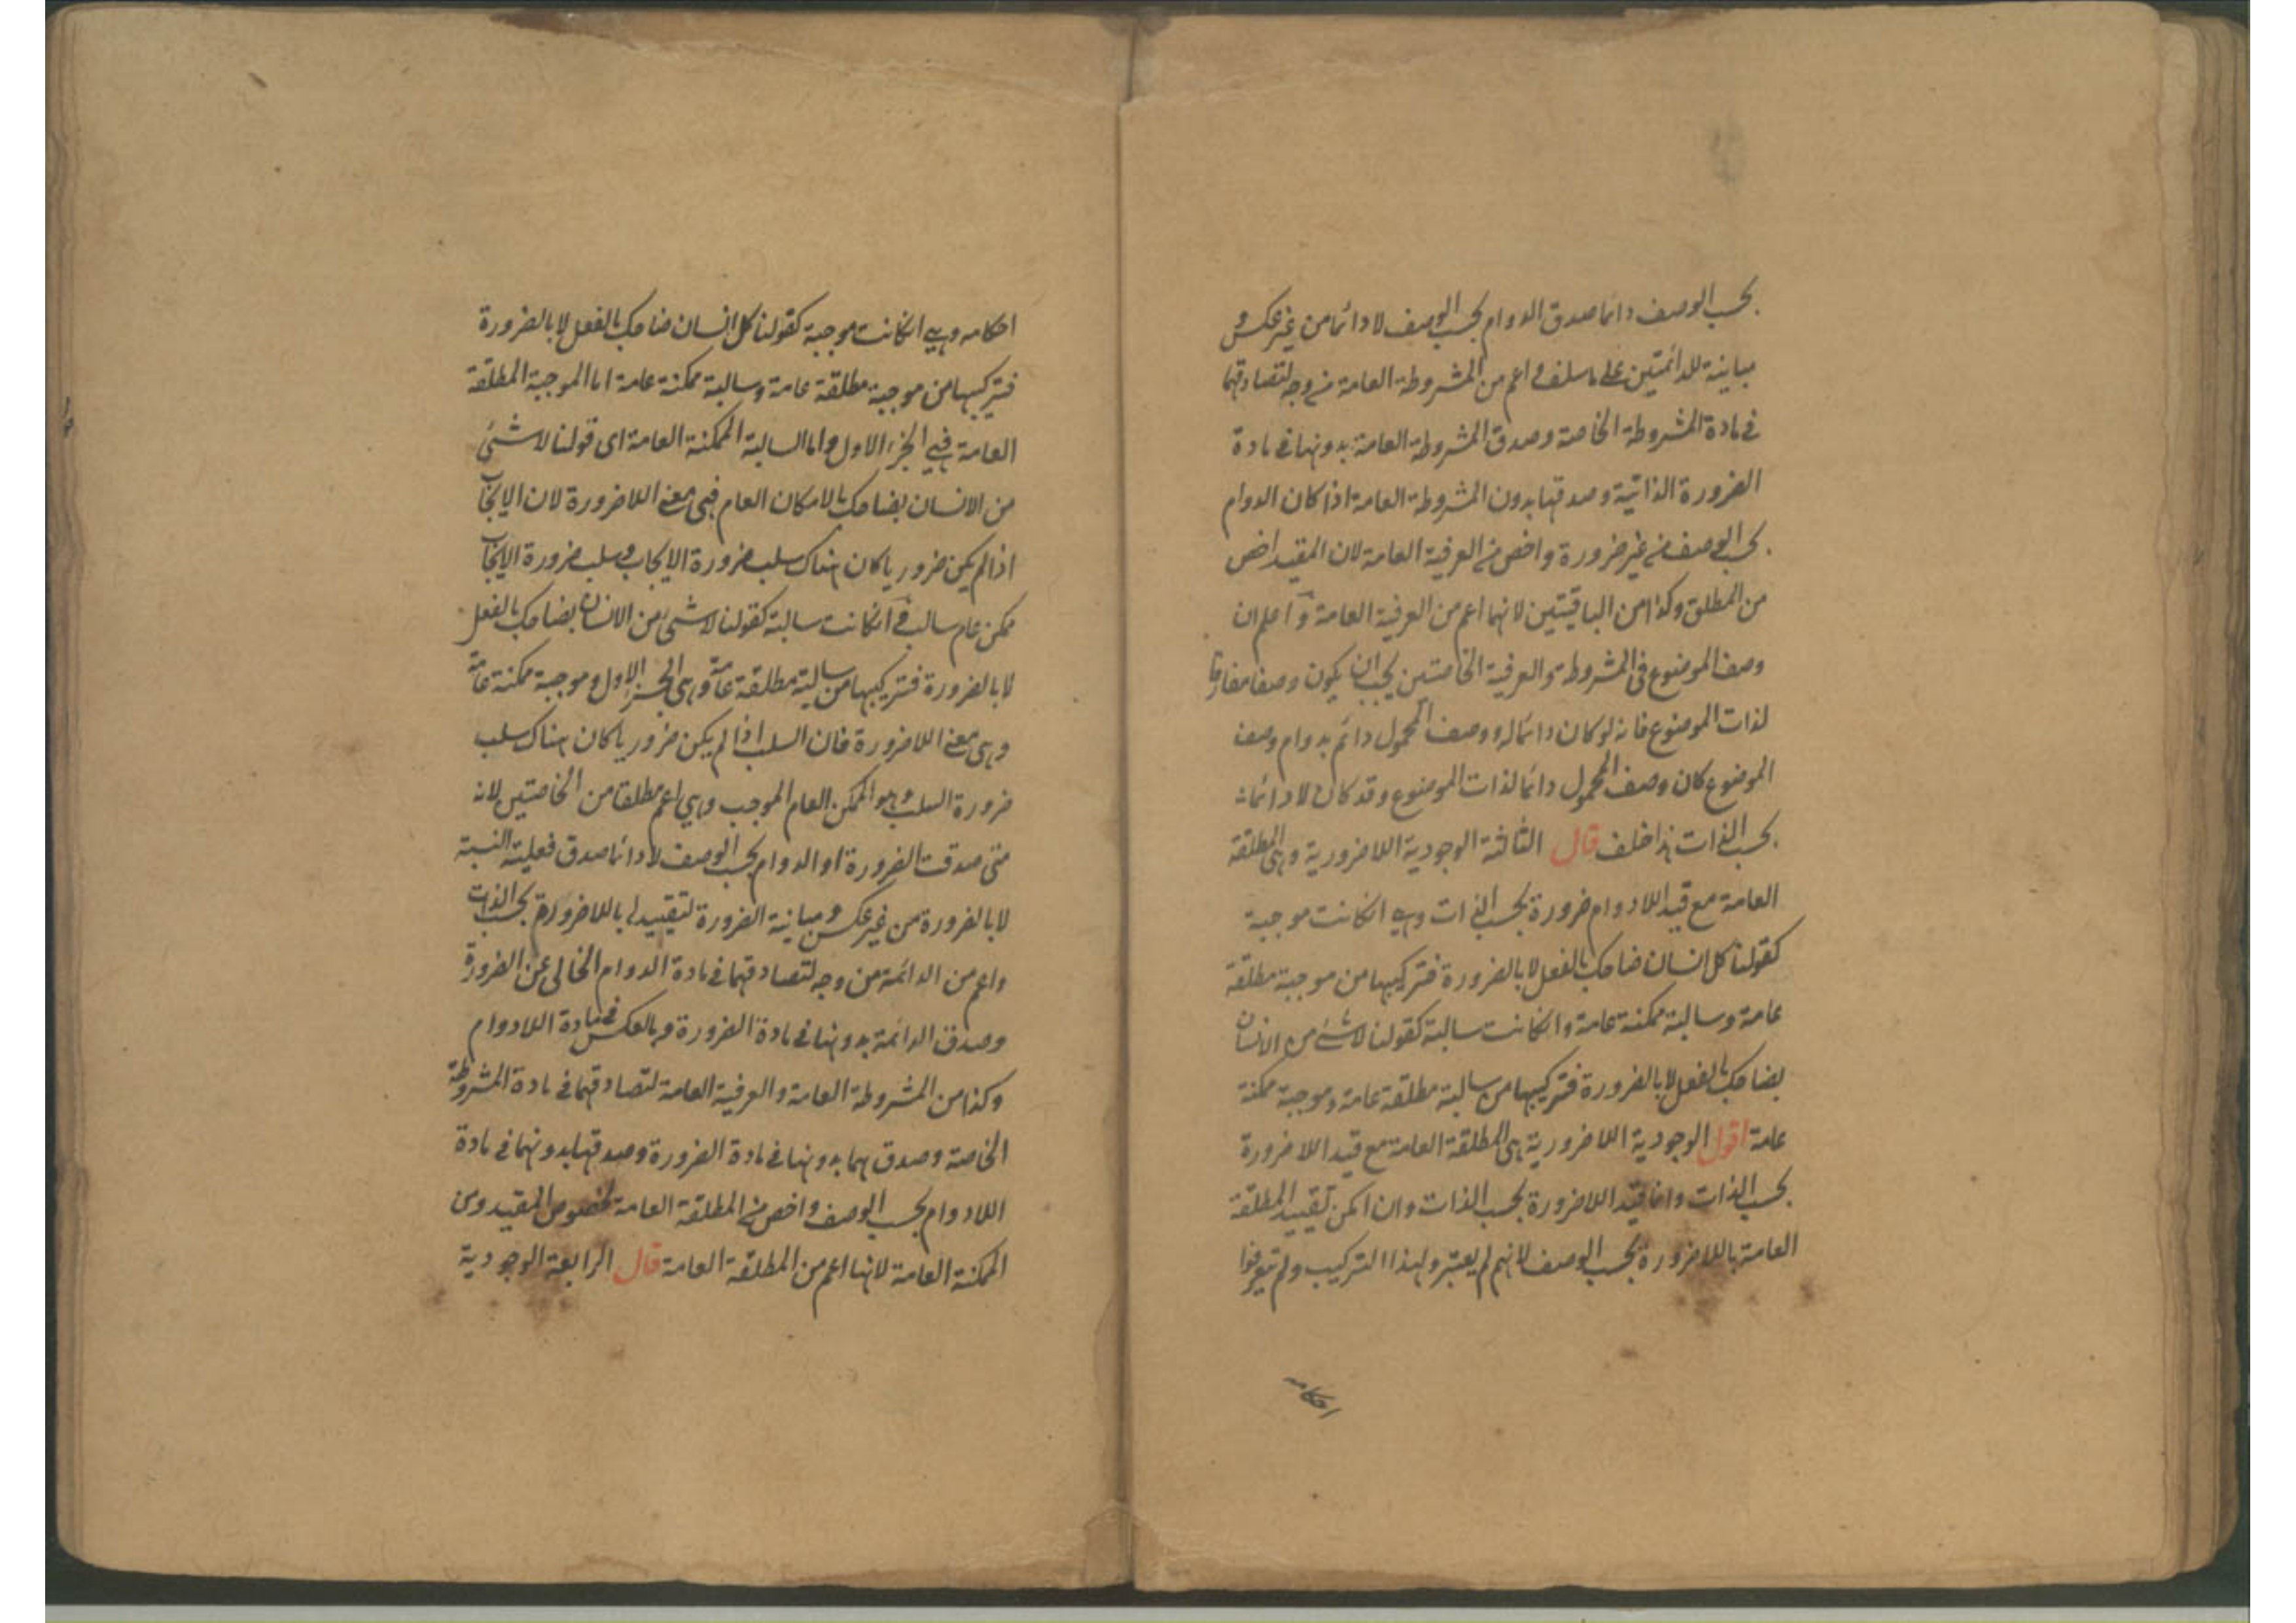 بحسب الوصف دائما صدق الدوام بحسب الوصف لا دائما من غير عكس و
مباينة للدائمتين على ما سلف واعم من المشروطة العامة من وجه لتصادقهما
في مادة المشروطة الخاصة وصدق المشروطة العامة بدونها في مادة
الضرورة الذاتية وصدقها بدون المشروطة العامة اذا كان الدوام
بحسب الوصف من غير ضرورة واخص من العرفية العامة لان المقيد اخص
من المطلق وكذا من الباقيتين لانهما اعم من العرفية العامة واعلم ان
وصف الموضوع في المشروطة والعرفية الخاصتين يجب ان يكون وصفا مفارقا
لذات الموضوع فانه لو كان دائما له ووصف المحمول دائم بدوام وصف
الموضوع كان وصف المحمول دائما لذات الموضوع وقد كان لا دائما
بحسب الذات هذا خلف قال الثالثة الوجودية اللاضرورية وهى المطلقة
العامة مع قيد اللادوام ضرورة بحسب الذات وهي انكانت موجبة
كقولنا كل انسان ضاحك بالفعل لا بالضرورة فتركيبها من موجبة مطلقة
عامة وسالبة ممكنة عامة وانكانت سالبة كقولنا لا شئ من الانسان
بضاحك بالفعل لا بالضرورة فتركيبها من سالبة مطلقة عامة وموجبة ممكنة
عامة اقول الوجودية اللاضرورية هى المطلقة العامة مع قيد اللاضرورة
بحسب الذات وانما قيد اللاضرورة بحسب الذات وان امكن تقييد المطلقة
العامة باللاضرورة بحسب الوصف لانهم لم يعتبروا هذا التركيب ولم يتعرفوا
احكامه
احكامه وهي انكانت موجبة كقولنا كل انسان ضاحك بالفعل لا بالضرورة
فتركيبها من موجبة مطلقة عامة وسالبة ممكنة عامة اما الموجبة المطلقة
العامة فهي الجزء الاول واما السالبة الممكنة العامة اى قولنا لا شئ
من الانسان بضاحك بالامكان العام فهى معنى اللاضرورة لان الايجاب
اذا لم يكن ضروريا كان هناك سلب ضرورة الايجاب وسلب ضرورة الايجاب
ممكن عام سالب وانكانت سالبة كقولنا لا شئ من الانسان بضاحك بالفعل
لا بالضرورة فتركيبها من سالبة مطلقة عامة وهى الجزء الاول وموجبة ممكنة عامة
وهى معنى اللاضرورة فان السلب اذا لم يكن ضروريا كان هناك سلب
ضرورة السلب وهو الممكن العام الموجب وهي اعم مطلقا من الخاصتين لانه
متى صدقت الضرورة او الدوام بحسب الوصف لا دائما صدق فعلية النسبة
لا بالضرورة من غير عكس ومباينة الضرورة لتقييدها باللاضرورة بحسب الذات
واعم من الدائمة من وجه لتصادقهما في مادة الدوام الخالى عن الضرورة
وصدق الدائمة بدونها في مادة الضرورة وبالعكس في مادة اللادوام
وكذا من المشروطة العامة والعرفية العامة لتصادقهما في مادة المشروطة
الخاصة وصدقهما بدونها في مادة الضرورة وصدقها بدونهما في مادة
اللادوام بحسب الوصف واخص من المطلقة العامة لخصوص المقيد ومن
الممكنة العامة لانها اعم من المطلقة العامة قال الرابعة الوجودية